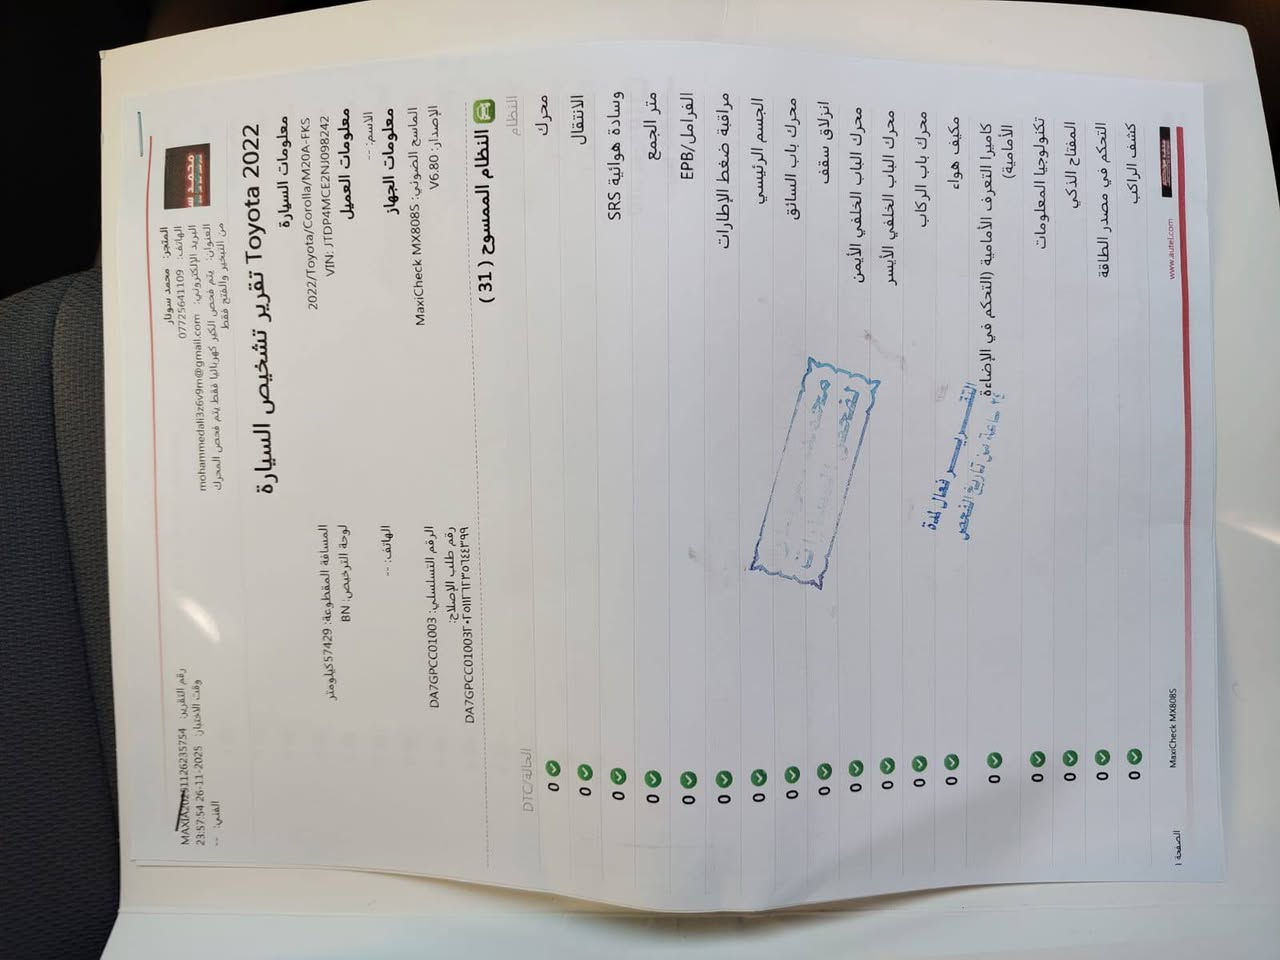 المتجر: محمد سولار
الهاتف: 07725641109
البريد الإلكتروني: mohammedali3z6v9m@gmail.com
العنوان: يتم فحص الكير كهربائيا فقط يتم فحص المحرك
من التبخير والفتح فقط
رقم التقرير: MAXIA20251126235754
وقت الاختبار: 23:57:54 26-11-2025
الفني: --
تقرير تشخيص السيارة Toyota 2022
معلومات السيارة
2022/Toyota/Corolla/M20A-FKS
المسافة المقطوعة: 57429كيلومتر
VIN: JTDP4MCE2NJ098242
لوحة الترخيص: BN
معلومات العميل
الاسم: --
الهاتف: --
معلومات الجهاز
الماسح الضوئي: MaxiCheck MX808S
الرقم التسلسلي: DA7GPCC01003
الإصدار: V6.80
رقم طلب الإصلاح:
DA7GPCC01003٢٠٢٥١١٢٦١٢٣٥٦٤٤٣٩٩
النظام الممسوح (31)
النظام
الحالة/DTC
محرك 0
الانتقال 0
وسادة هوائية SRS 0
متر الجمع 0
الفرامل/EPB 0
مراقبة ضغط الإطارات 0
الجسم الرئيسي 0
محرك باب السائق 0
انزلاق سقف 0
محرك الباب الخلفي الأيمن 0
محرك الباب الخلفي الأيسر 0
محرك باب الركاب 0
مكيف هواء 0
كاميرا التعرف الأمامية (التحكم في الإضاءة
الأمامية) 0
تكنولوجيا المعلومات 0
المفتاح الذكي 0
التحكم في مصدر الطاقة 0
كشف الراكب 0
التقرير فعال لمدة
٢٤ ساعة من تاريخ الفحص
www.autel.com
MaxiCheck MX808S
الصفحة ١